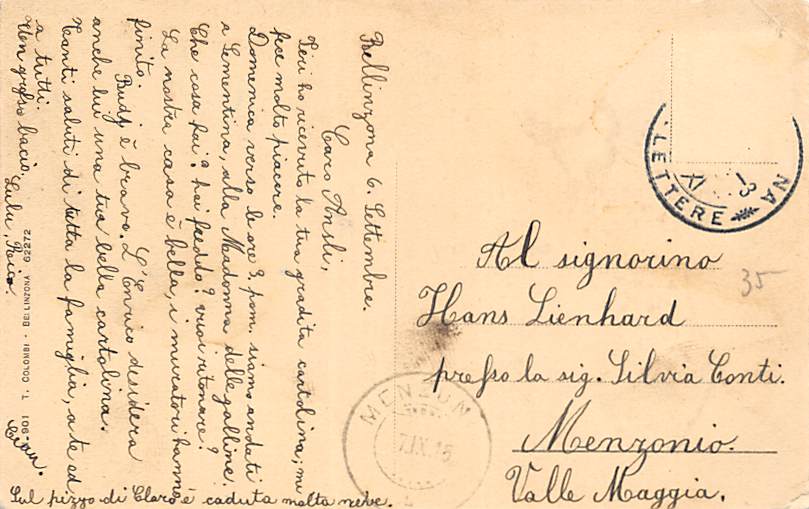 Bellinzona 6. Settembre.
Caro Ansli,
Ieri ho ricevuto la tua gradita cartolina, mi
fece molto piacere.
Domenica verso le ore 3, pom. siamo andati
a Sementina, alla Madonna delle galline.
Che cosa fai? hai freddo? vuoi ritonare?
La nostra casa è bella, i muratori hanno
finito.
Budj è bravo. L'Enrico disidera
anche lui una tua bella cartolina.
Tanti saluti di tutta la famiglia, a te ed
a tutti.
Un grosso bacio. Ciau.
Lulu, Reico.
Sul pizzo di Claro è caduta molta neve.
901 L. COLOMBI - BELLINZONA 62272
LETTERE
NA
XI
Al signorino
35
Hans Lienhard
presso la sig. Silvia Conti.
Menzonio.
Valle Maggia.
MENZON
7.IX.15